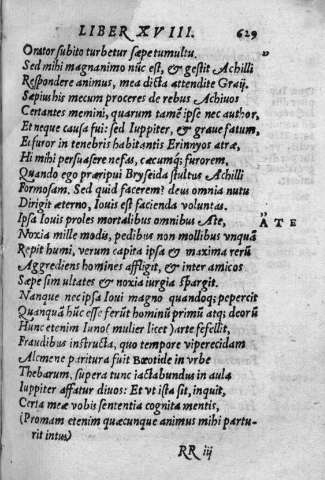 LIBER XVIII. 629
Orator subito turbetur sæpe tumultu. „
Sed mihi magnanimo nūc est, & gestit Achilli
Respondere animus, mea dicta attendite Graij.
Sæpius his mecum proceres de rebus Achiuos
Certantes memini, quarum tamē ipse nec author,
Et neque causa fui: sed Iuppiter, & graue fatum,
Et furor in tenebris habitantis Erinnyos atræ,
Hi mihi persuasere nefas, cæcumq; furorem,
Quando ego præripui Bryseida stultus Achilli
Formosam. Sed quid facerem? deus omnia nutu
Dirigit æterno, Iouis est facienda voluntas.
Ipsa Iouis proles mortalibus omnibus Ate, „ ATE
Noxia mille modis, pedibus non mollibus vnquā
Repit humi, verum capita ipsa & maxima rerū
Aggrediens homines affligit, & inter amicos
Sæpe simultates & noxia iurgia spargit.
Nanque nec ipsa Ioui magno quandoq; pepercit
Quanquā hūc esse ferūt hominū primū atq; deorū
Hunc etenim Iuno (mulier licet) arte fefellit,
Fraudibus instructa, quo tempore viperecidam
Alcmene paritura fuit Bœotide in vrbe
Thebarum, supera tunc iactabundus in aula
Iuppiter affatur diuos: Et vt ista sit, inquit,
Certa meæ vobis sententia cognita mentis,
(Promam etenim quæcunque animus mihi partu-
rit intus)
RR iij